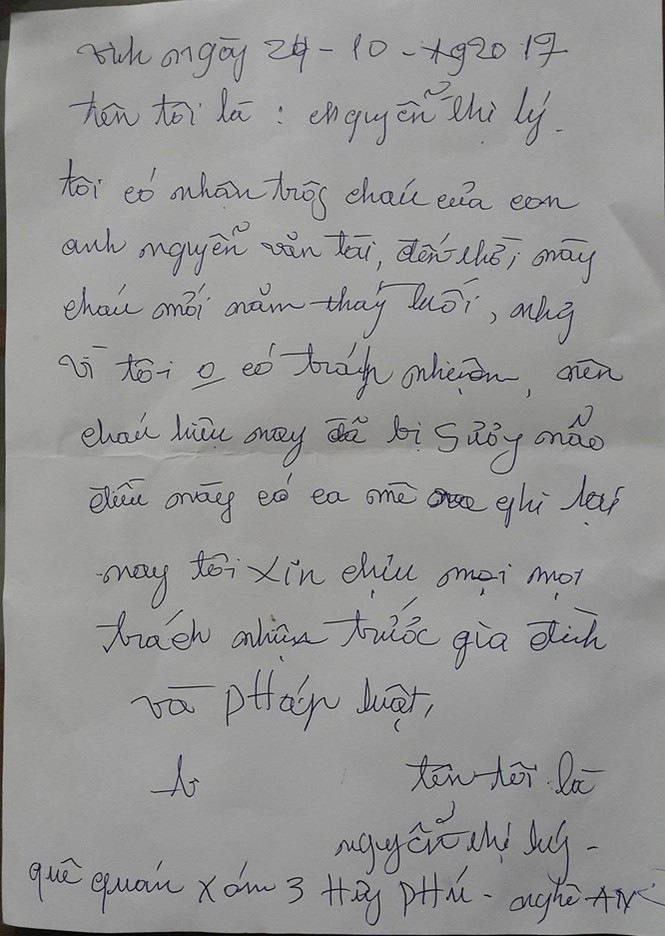 vinh ngày 24 - 10 - 2017
tên tôi là : nguyễn thị lý.
tôi có nhận trôg cháu của con
anh nguyễn văn tài, đến thời này
cháu mới năm tháy tuổi, nhưg
vì tôi o có trách nhiệm, nên
cháu hiệu nay đã bị sưởy não
điều này có ca mê ghi lại
nay tôi xin chịu mọi mọi
trách nhiệm trước gia đình
và pHáp luật,
tên tôi là
nguyễn thị lý -
quê quán xóm 3 Hưg pHú - nghệ AN